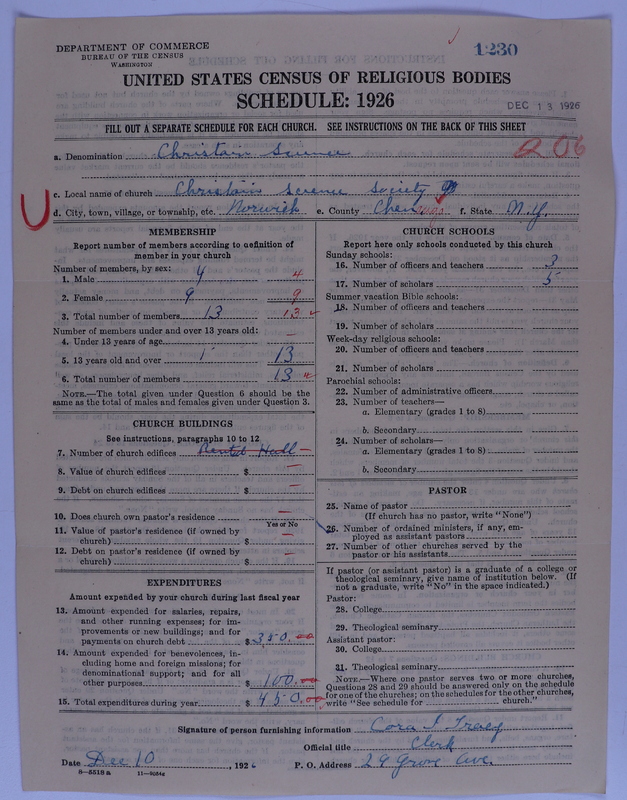 DEPARTMENT OF COMMERCE
BUREAU OF THE CENSUS
WASHINGTON
1230
UNITED STATES CENSUS OF RELIGIOUS BODIES
SCHEDULE: 1926
DEC 13 1926
FILL OUT A SEPARATE SCHEDULE FOR EACH CHURCH. SEE INSTRUCTIONS ON THE BACK OF THIS SHEET
206
a. Denomination Christain Science
c. Local name of church Christain Science Society
d. City, town, village, or township, etc. Norwich e. County Chenango f. State N.Y.
MEMBERSHIP
Report number of members according to definition of
member in your church
Number of members, by sex:
1. Male 4 4
2. Female 9 9
3. Total number of members 13 13
Number of members under and over 13 years old:
4. Under 13 years of age —
5. 13 years old and over 13
6. Total number of members 13
NOTE.—The total given under Question 6 should be the
same as the total of males and females given under Question 3.
CHURCH BUILDINGS
See instructions, paragraphs 10 to 12
7. Number of church edifices Rented Hall —
8. Value of church edifices $ —
9. Debt on church edifices $ —
10. Does church own pastor's residence —
Yes or No
11. Value of pastor's residence (if owned by
church) $ —
12. Debt on pastor's residence (if owned by
church) $ —
EXPENDITURES
Amount expended by your church during last fiscal year
13. Amount expended for salaries, repairs,
and other running expenses; for im-
provements or new buildings; and for
payments on church debt $ 350.00
14. Amount expended for benevolences, in-
cluding home and foreign missions; for
denominational support; and for all
other purposes $ 100.00
15. Total expenditures during year $ 450.00
CHURCH SCHOOLS
Report here only schools conducted by this church
Sunday schools:
16. Number of officers and teachers 3
17. Number of scholars 5
Summer vacation Bible schools:
18. Number of officers and teachers
19. Number of scholars
Week-day religious schools:
20. Number of officers and teachers
21. Number of scholars
Parochial schools:
22. Number of administrative officers
23. Number of teachers—
a. Elementary (grades 1 to 8)
b. Secondary
24. Number of scholars—
a. Elementary (grades 1 to 8)
b. Secondary
PASTOR
25. Name of pastor
(If church has no pastor, write "None")
26. Number of ordained ministers, if any, em-
ployed as assistant pastors
27. Number of other churches served by the
pastor or his assistants
If pastor (or assistant pastor) is a graduate of a college or
theological seminary, give name of institution below. (If
not a graduate, write "No" in the space indicated.)
Pastor:
28. College
29. Theological seminary
Assistant pastor:
30. College
31. Theological seminary
NOTE.—Where one pastor serves two or more churches,
Questions 28 and 29 should be answered only on the schedule
for one of the churches; on the schedules for the other churches,
write "See schedule for church."
Signature of person furnishing information Cora I Tracy
Official title Clerk
Date Dec 10, 1926 P. O. Address 29 Grove Ave.
8—5518 a 11—9054g